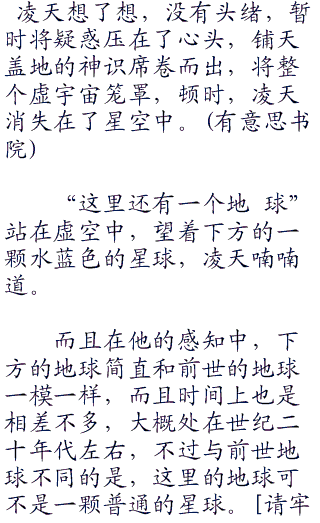 凌天想了想，没有头绪，暂
时将疑惑压在了心头，铺天
盖地的神识席卷而出，将整
个虚宇宙笼罩，顿时，凌天
消失在了星空中。(有意思书
院)
“这里还有一个地 球”
站在虚空中，望着下方的一
颗水蓝色的星球，凌天喃喃
道。
而且在他的感知中，下
方的地球简直和前世的地球
一模一样，而且时间上也是
相差不多，大概处在世纪二
十年代左右，不过与前世地
球不同的是，这里的地球可
不是一颗普通的星球。[请牢